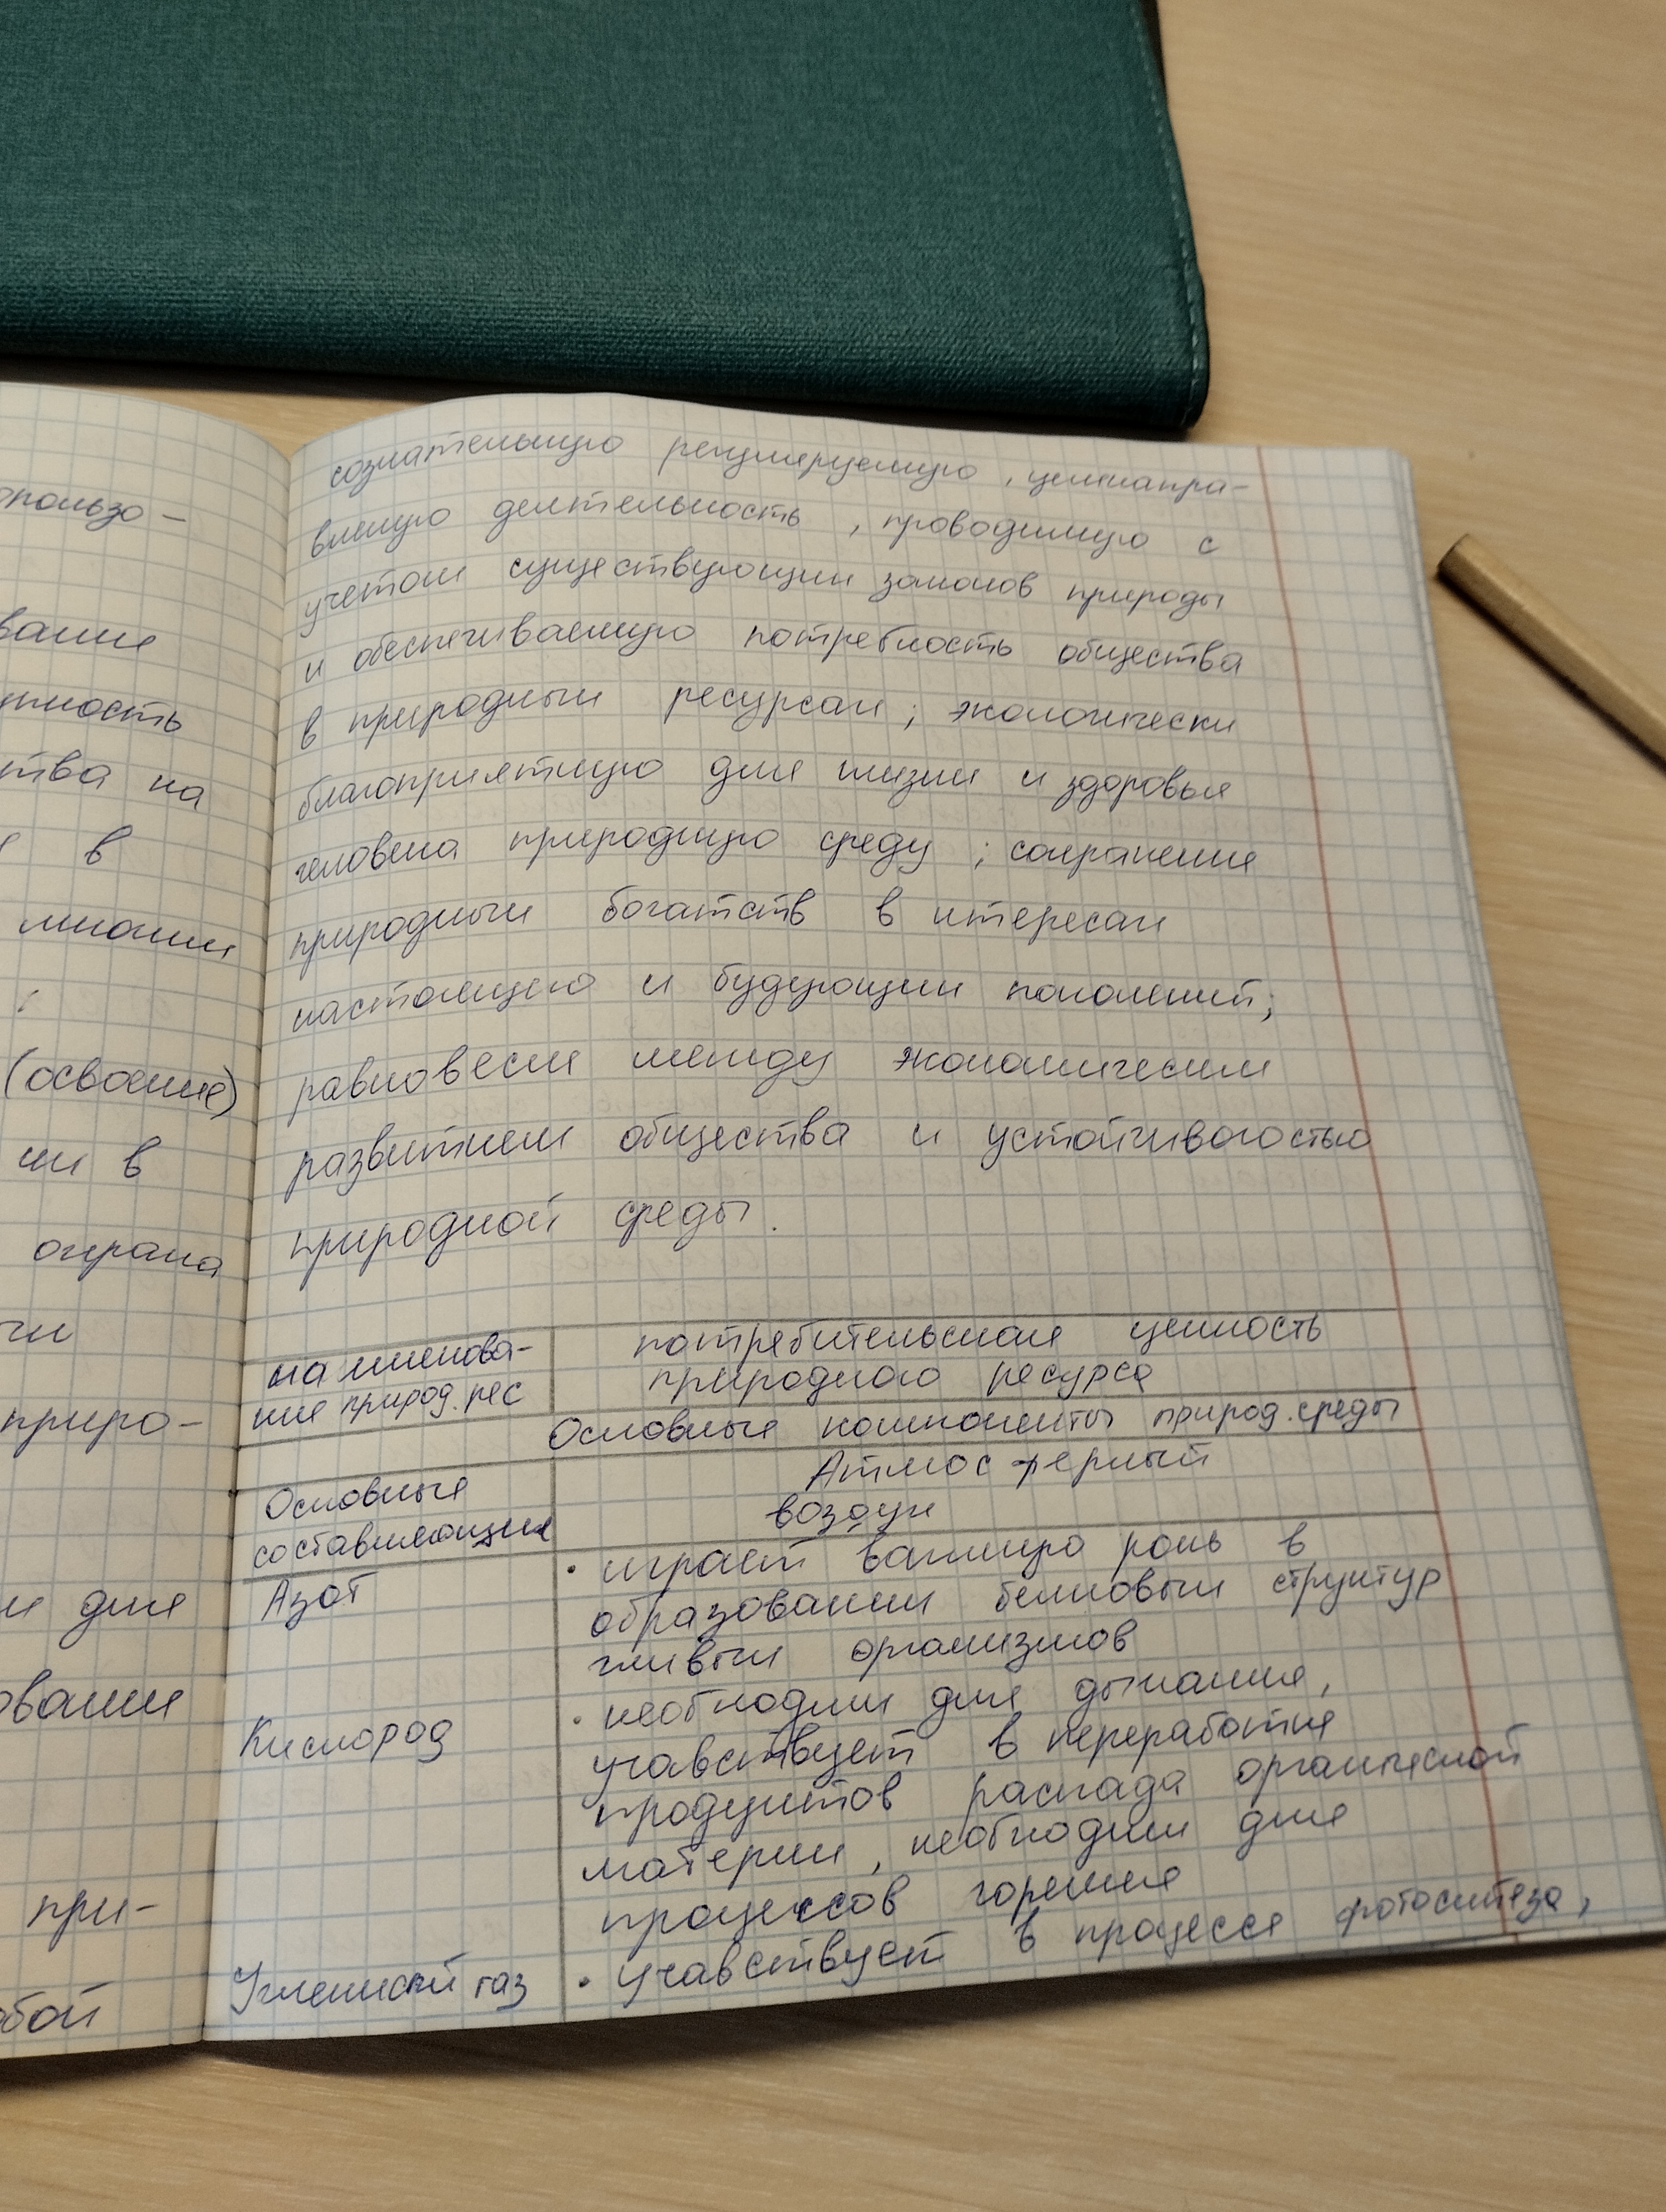 опользо-
вание
ность
ства на
в
многих
:
(освоение)
ми в
охрана
чи
приро-
и для
ование
при-
обой
сознательную регулируемую, целенапра-
вленую деятельность, проводимую с
учетом существующих законов природы
и обеспечиваемую потребность общества
в природных ресурсах; экологически
благоприятную для жизни и здоровья
человека природную среду; сохранение
природных богатств в итересах
настоящего и будующих поколений;
равновесие между экономическим
развитием общества и устойчивогостью
природной среды.
наименова- потребительская ценность
ние природ. рес природного ресурса
Основные компоненты природ. среды
Основные Атмосферный
составляющие воздух
Азот • играет важную роль в
образовании белковых структур
живых организмов
Кислород • необходим для дыхание,
учавствует в переработке
продуктов распада органической
материи, необходим для
процессов горение
Углекислый газ • учавствует в процессе фотосинтеза,